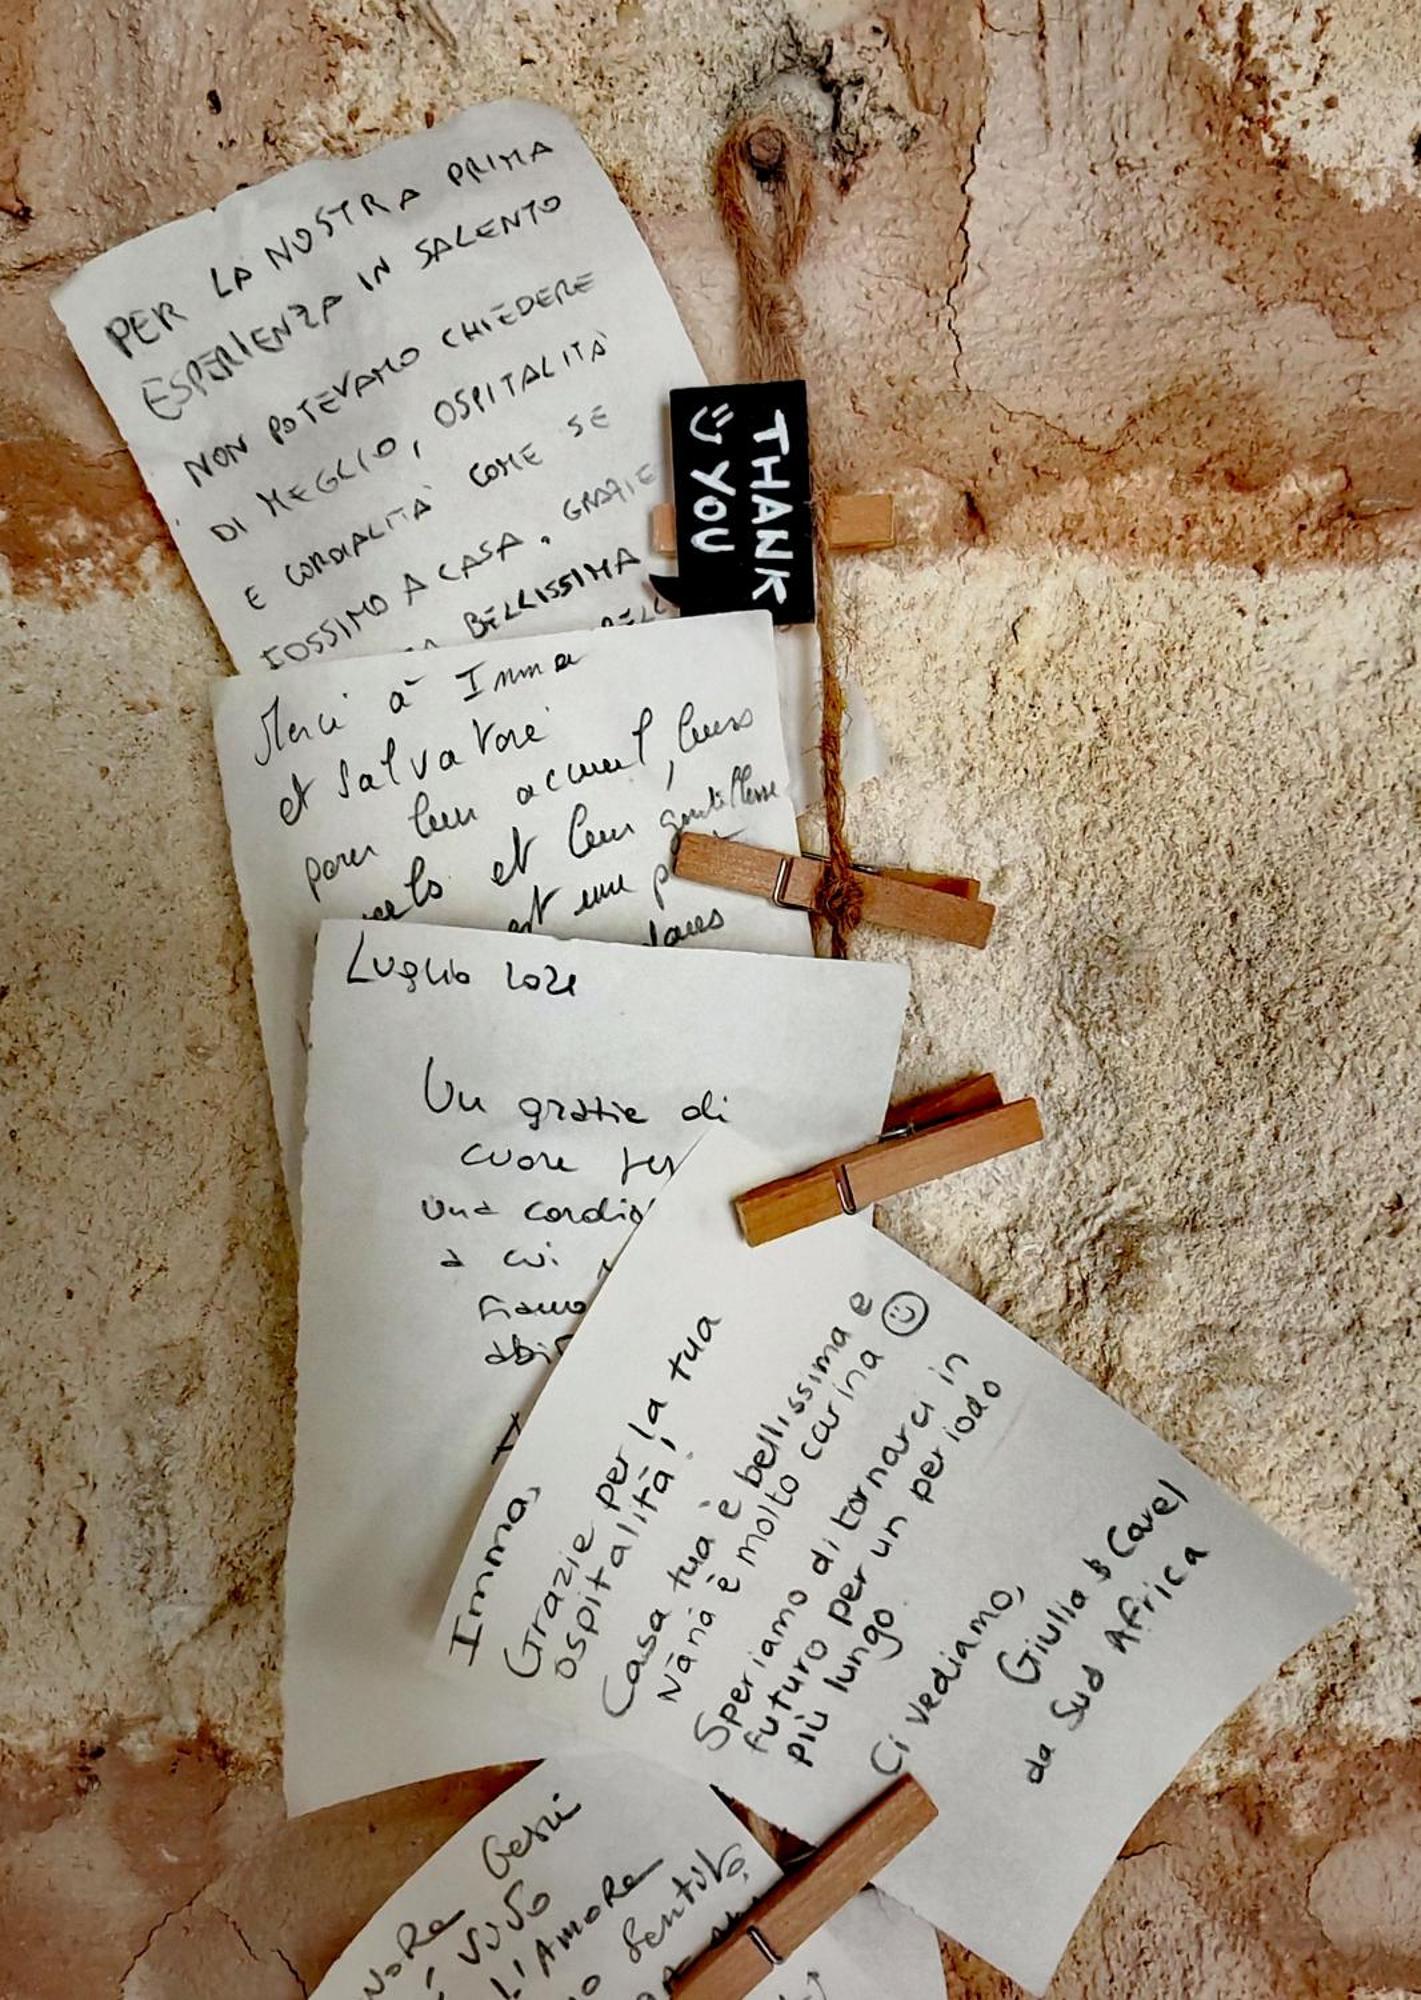 PER LA NOSTRA PRIMA
ESPERIENZA IN SALENTO
NON POTEVAMO CHIEDERE
DI MEGLIO, OSPITALITÀ
E CORDIALITÀ COME SE
FOSSIMO A CASA. GRAZIE
BELLISSIMA
THANK
YOU
Merci à Imma
et Salvatore
pour leur accueil, leurs
et leur gentillesse
est une
dans
Luglio 2021
Un grazie di
cuore per
una cordia
a cui
siamo
abbi
Imma,
Grazie per la tua
ospitalità!
Casa tua è bellissima e
Nanà è molto carina
Speriamo di tornarci in
futuro per un periodo
più lungo.
Ci vediamo,
Giulia & Cavel
da Sud Africa
Gesù
L'AMORE
sentito